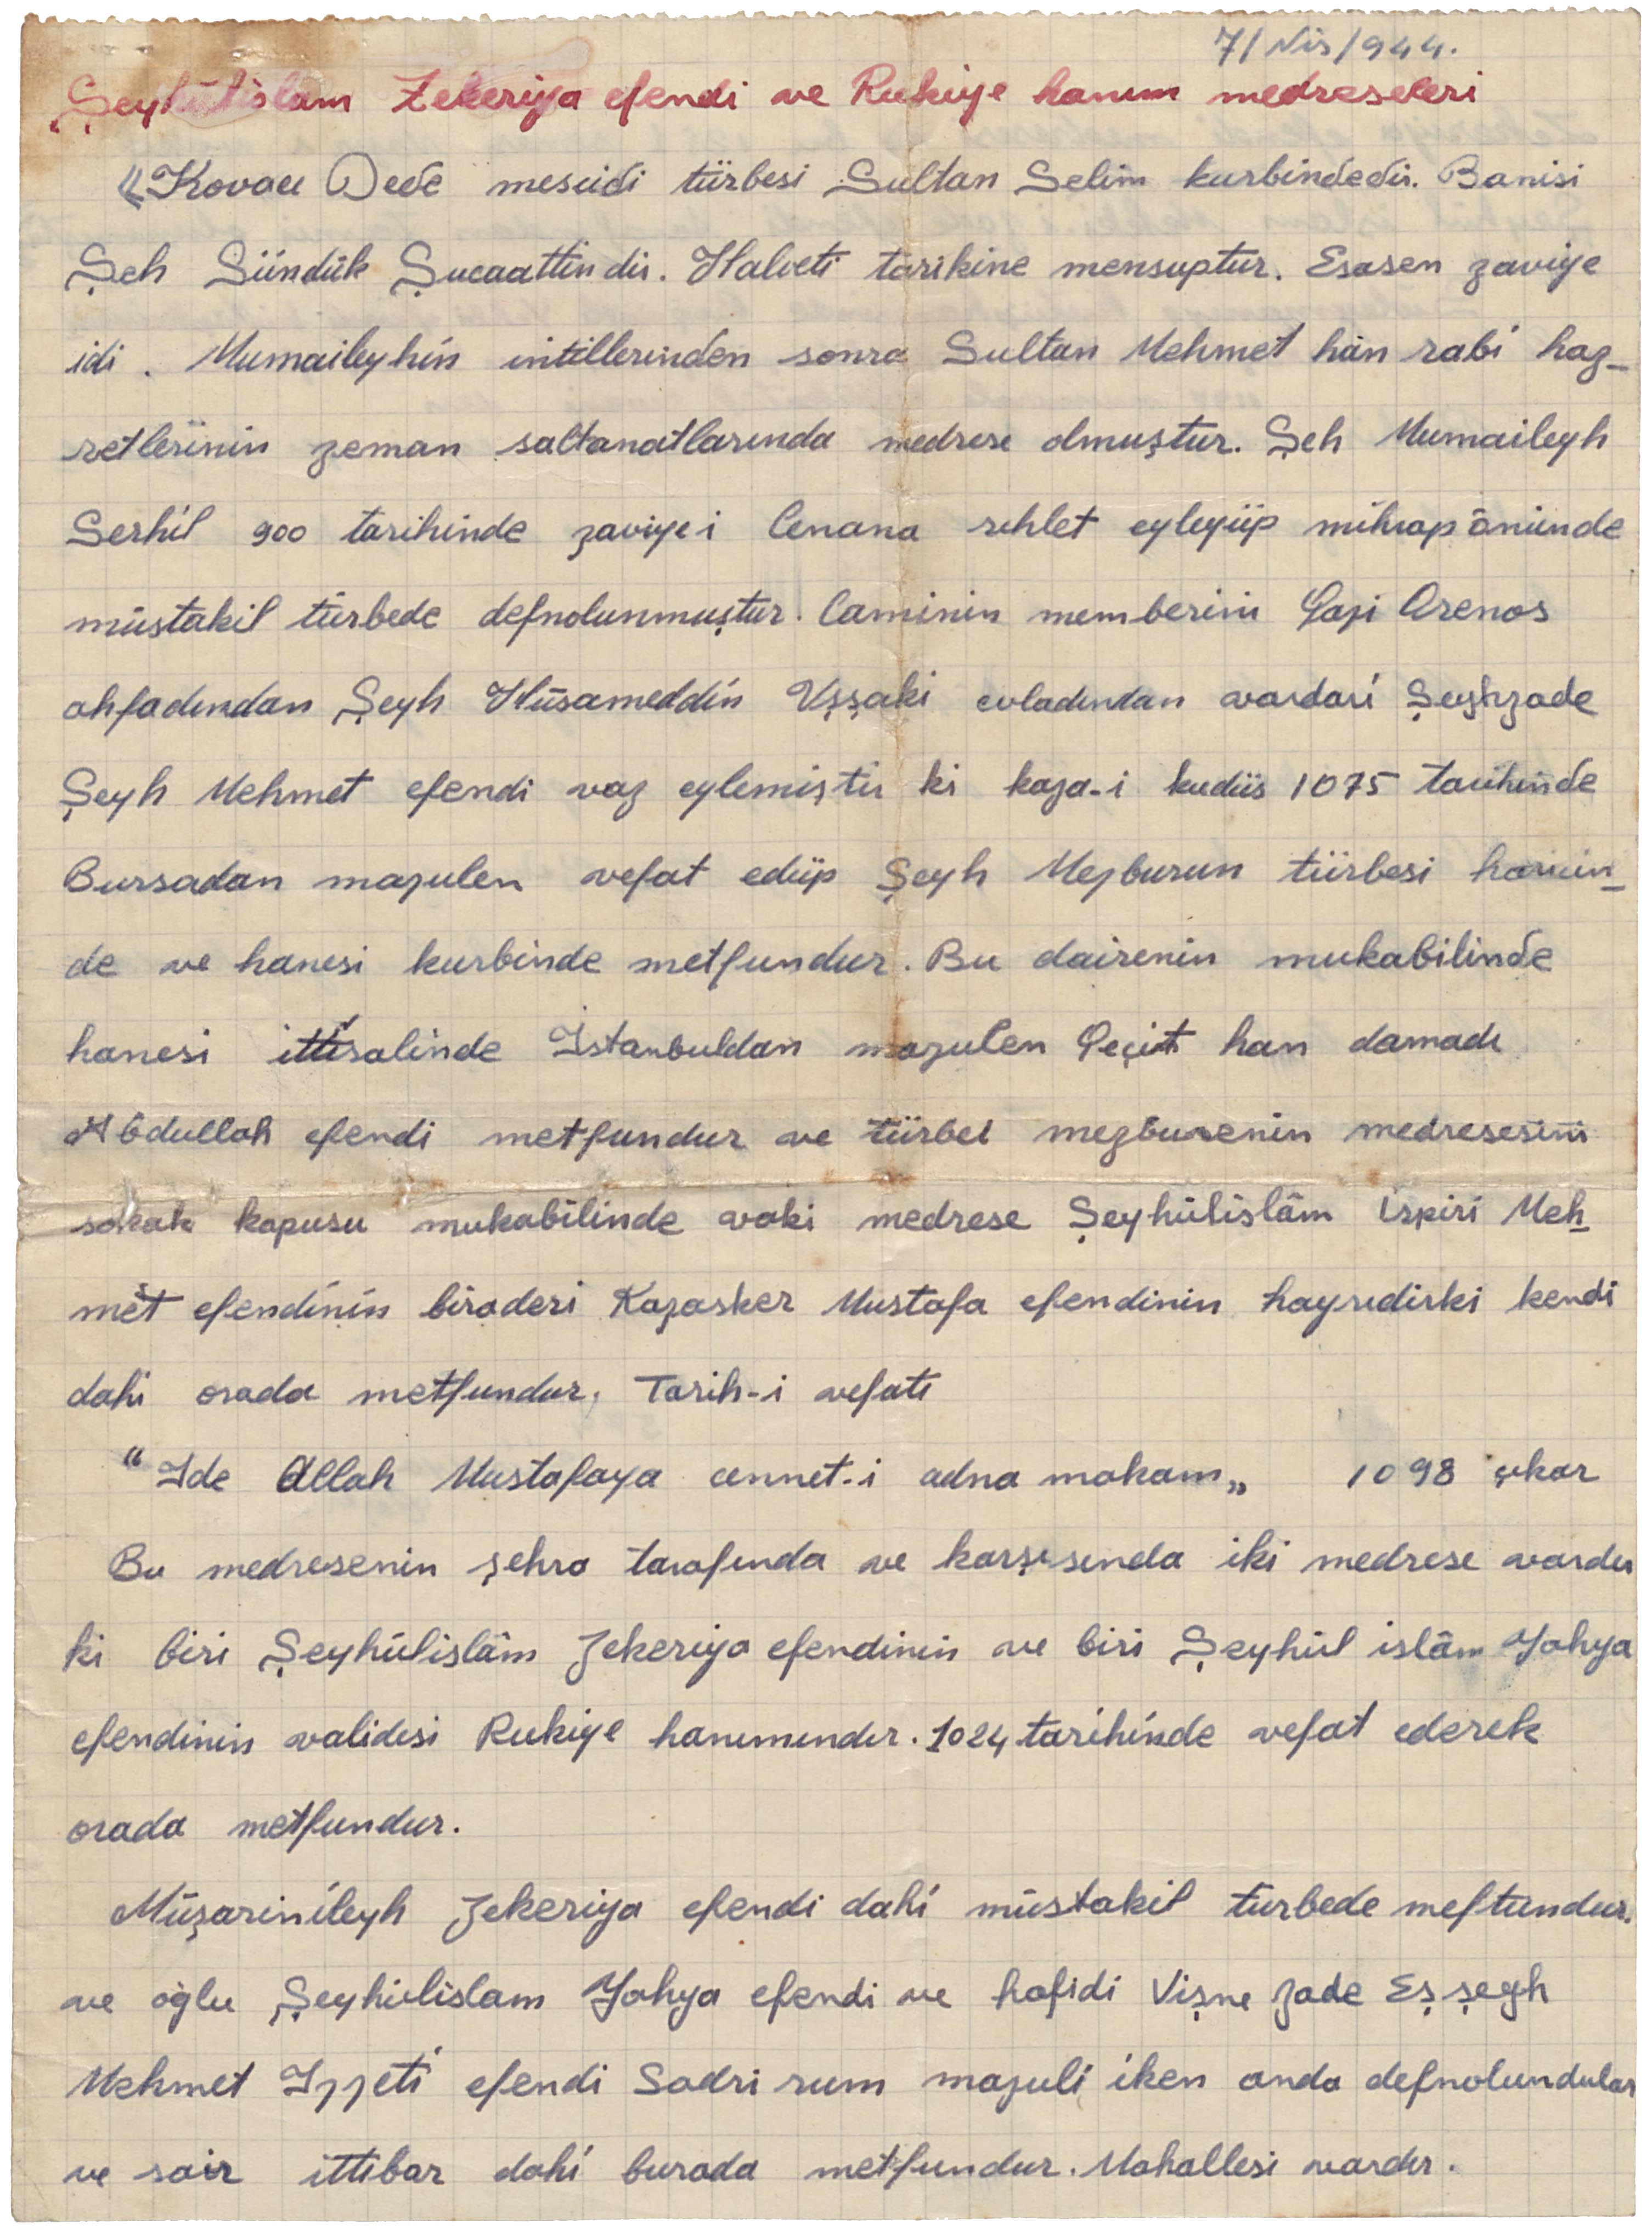 7/Nis/944.
Şeyhülislâm Zekeriya efendi ve Rukiye hanım medreseleri
«Kovacı Dede mescidi türbesi Sultan Selim kurbindedir. Banisi
Şeh Sündük Şucaattindir. Halveti tarikine mensuptur. Esasen zaviye
idi. Mumaileyhin intillerinden sonra Sultan Mehmet hân rabi haz-
retlerinin zeman saltanatlarında medrese olmuştur. Şeh Mumaileyh
Serhil 900 tarihinde zaviye-i Cenana rıhlet eyleyüp mihrap önünde
müstakil türbede defnolunmuştur. Caminin memberini Gazi Orenos
ahfadından Şeyh Hüsameddin Uşşaki evladından vardari Şeyhzade
Şeyh Mehmet efendi vaz eylemiştir ki kaza-i kudüs 1075 tarihinde
Bursadan mazulen vefat edüp Şeyh Mezburun türbesi harimin-
de ve hanesi kurbinde metfundur. Bu dairenin mukabilinde
hanesi ittisalinde İstanbuldan mazulen Geçit han damadı
Abdullah efendi metfundur ve türbei mezburenin medresesini
sokak kapusu mukabilinde vaki medrese Şeyhülislâm İspiri Meh-
met efendinin biraderi Kazasker Mustafa efendinin hayrıdirki kendi
dahi orada metfundur, Tarih-i vefatı
“Ide Allah Mustafaya cennet-i adna makam„ 1098 çıkar
Bu medresenin şehra tarafında ve karşısında iki medrese vardır
ki biri Şeyhülislâm Zekeriya efendinin ve biri Şeyhül islâm Yahya
efendinin validesi Rukiye hanımındır. 1024 tarihinde vefat ederek
orada metfundur.
Müşarinileyh Zekeriya efendi dahi müstakil türbede meftundur.
ve oğlu Şeyhülislam Yahya efendi ve hafidi Vişne zade Eş şeyh
Mehmet Izzeti efendi Sadri rum mazuli iken anda defnolundular
ve sair ittibar dahi burada metfundur. Mahallesi vardır.